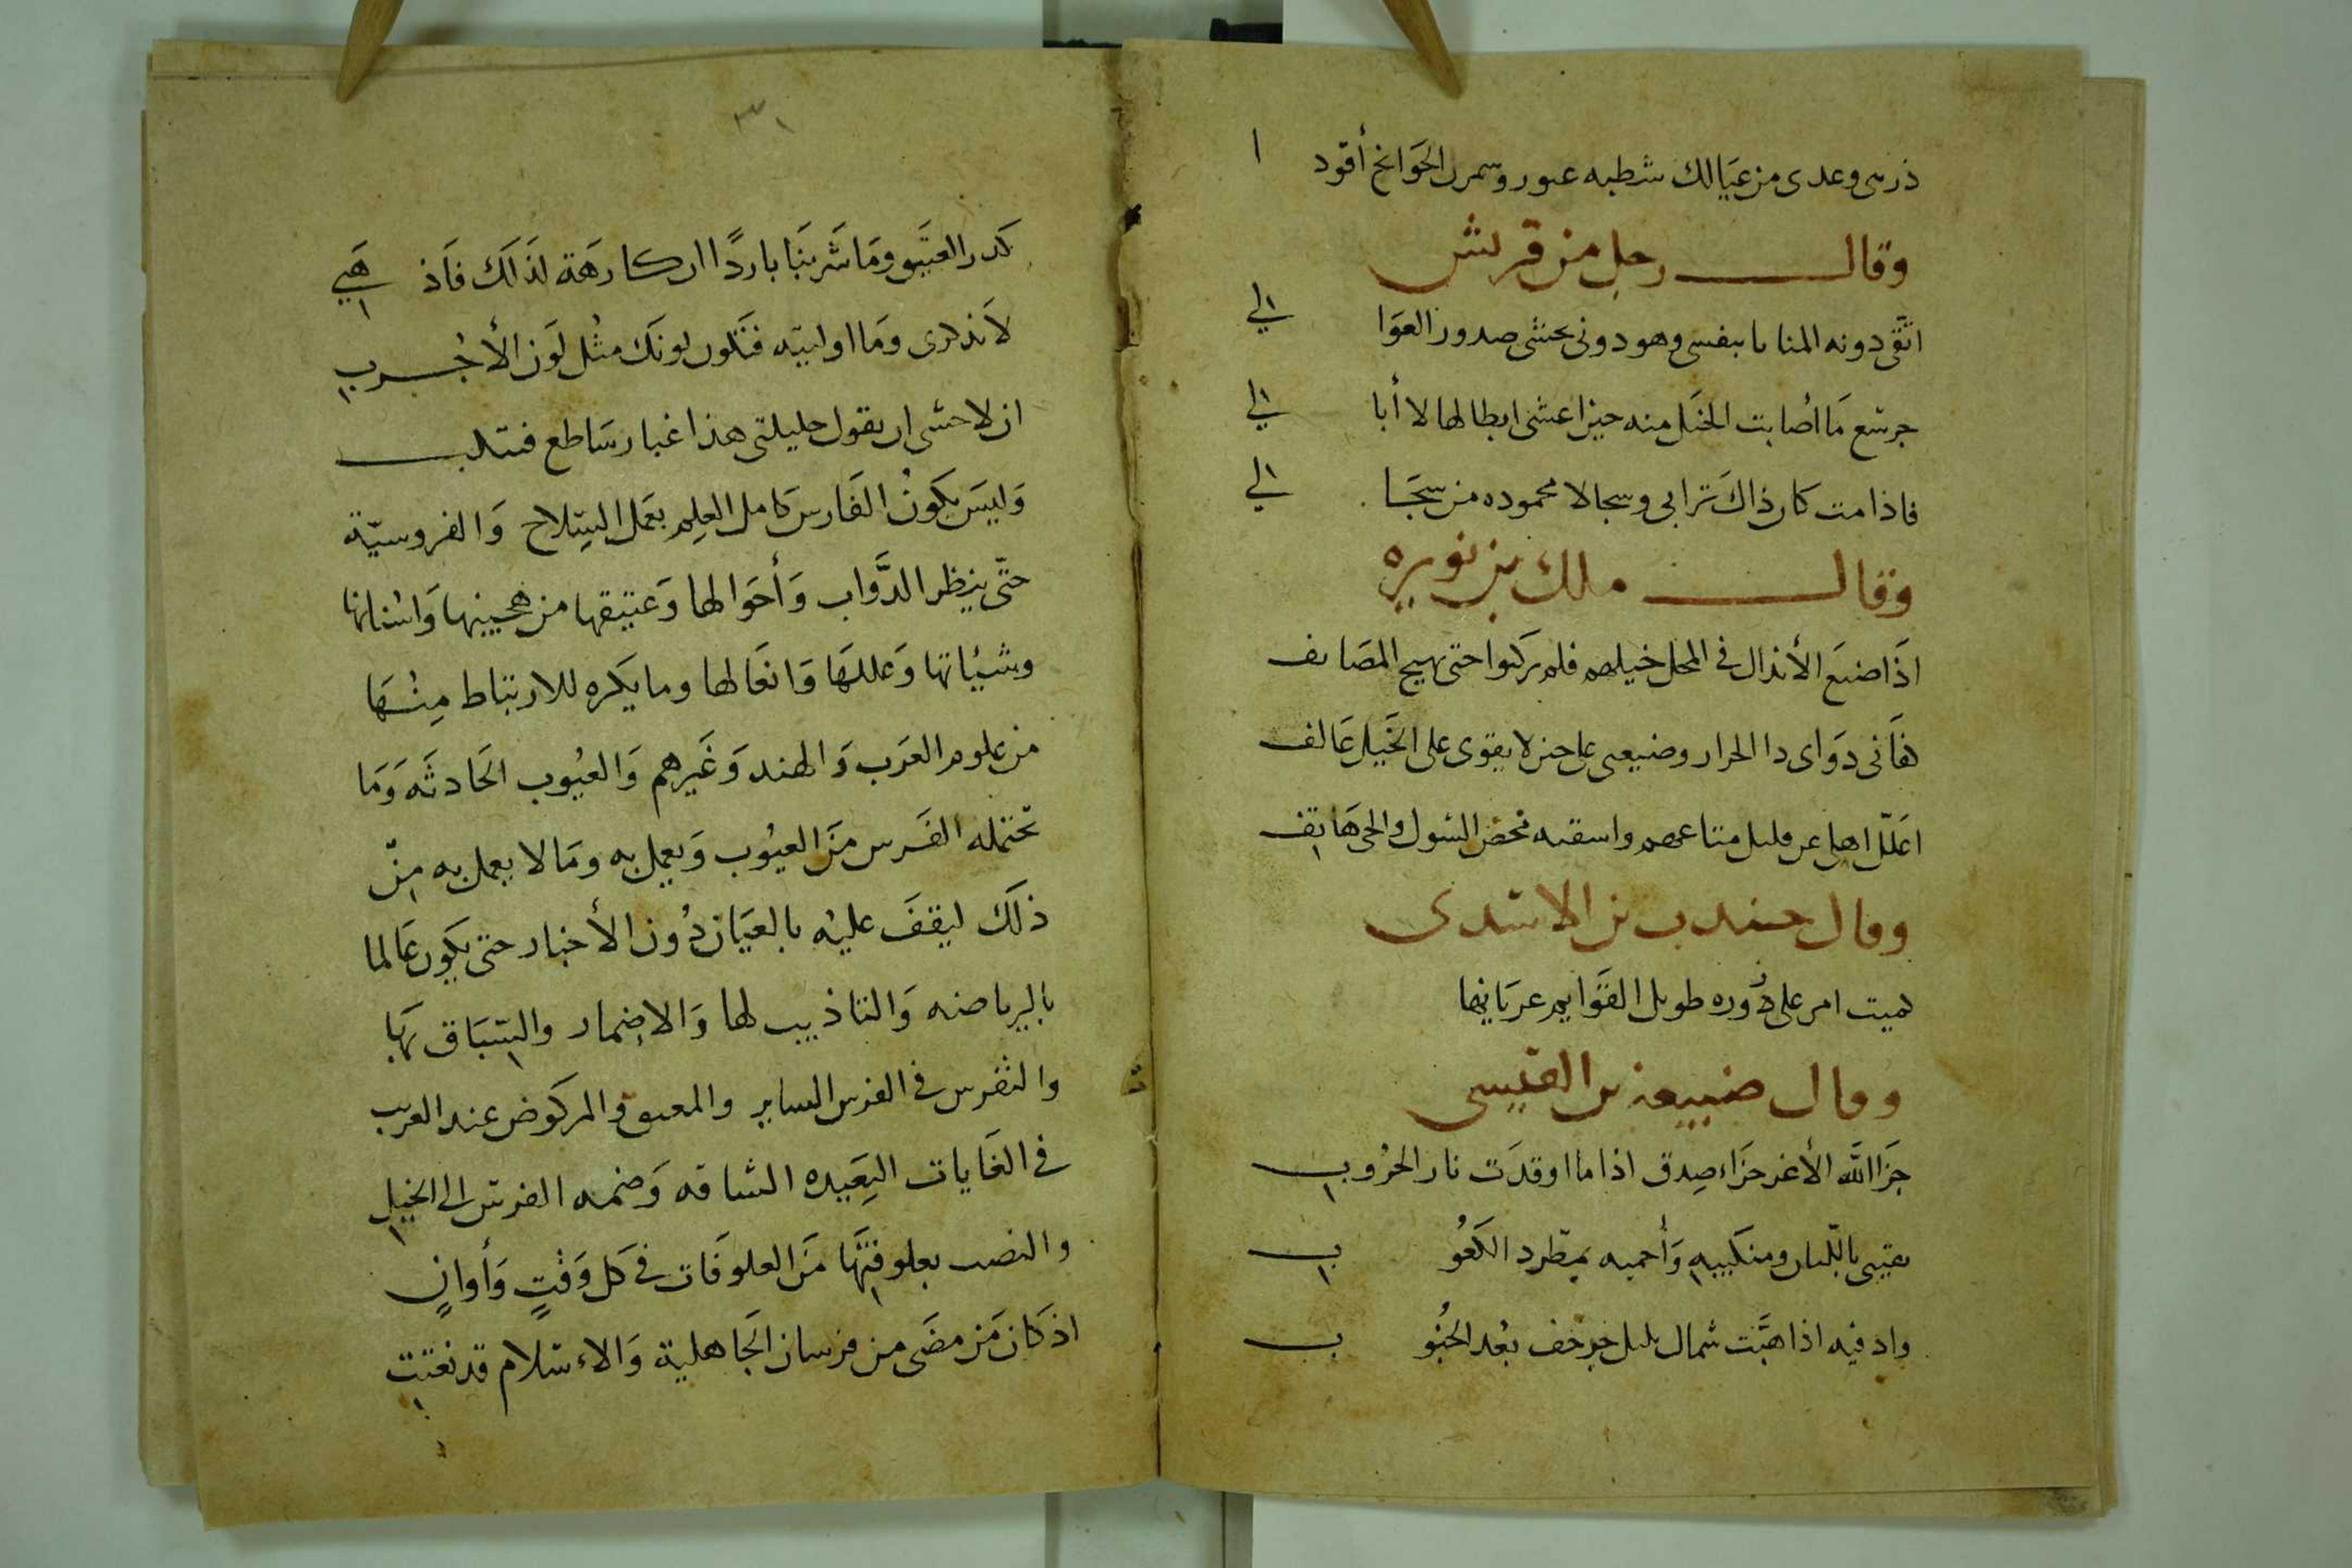 ذرىى وعدى من عيالك شطبه عىور وسمرل الحوانح أقود ا
وقال رجل من قريش
اتقى دونه المنايا بنفسى وهو دونى يحشى صدور العوا الي
جرشع ما أصابت الخيل منه حين اعشى ابطالها لا أبا الي
فاذا مت كان ذاك ترابى وسجالا محموده من سجا الي
وقال ملك بن نويره
اذا ضيع الأنذال فى المحل خيلهم فلم يركبوا حتى يهيج المصايف
هانى دواى دا الحرار وضيعى على حين لا يقوى على الخيل عالف
اعلل اهلى عن قليل متاعهم واسقيه محض الشول والحى هاتف
وقال جندب بن الاسدى
كميت امر على دوره طويل القوايم عريانها
وقال ضبيعة بن القيسى
جزا الله الأغر جزاء صدق اذا ما اوقدت نار الحروب
يقينى باللبان ومنكبيه وأحميه بمطرد الكعو ب
وادفيه اذا هبت شمال بليل حرجف بعد الجنو ب
٣١
كدر العتيق وما شربنا باردا ان كارهة لذلك فاذ هبي
لا تذكرى وما اوليته فتكون لونك مثل لون الأجرب
ان لاخشى ان تقول حليلتى هذا غبار ساطع فتلبب
وليس يكون الفارس كامل العلم بعمل السلاح والفروسية
حتى ينظر الدواب وأحوالها وعتيقها من هجينها واسنانها
وشيئاتها وعللها وانعالها وما يكره للارتباط منها
من علوم العرب والهند وغيرهم والعيوب الحادثه وما
تحتمله الفرس من العيوب ويعمل به وما لا يعمل به من
ذلك ليقف عليه بالعيان دون الأخبار حتى يكون عالما
بالرياضه والتاذيب لها والاضمار والسباق بها
والتفرس فى الفرس الساير والمعىق والمركوض عند العرب
فى الغايات البعيده الشاقه وضمه الفرس الى الخيل
والنصب بعلوفتها من العلوفات فى كل وقت وأوان
اذ كان من مضى من فرسان الجاهلية والاسلام قد نعتت